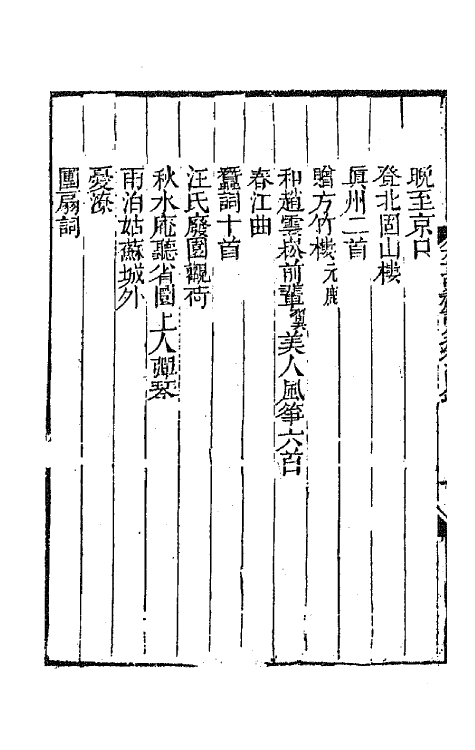 晚至京口
登北固山樓
眞州二首
贈方竹樓元鹿
和趙雲崧前輩翼美人風箏六首
春江曲
蠶詞十首
汪氏廢園觀荷
秋水庵聽省圓上人彈琴
雨泊姑蘇城外
憂潦
團扇詞